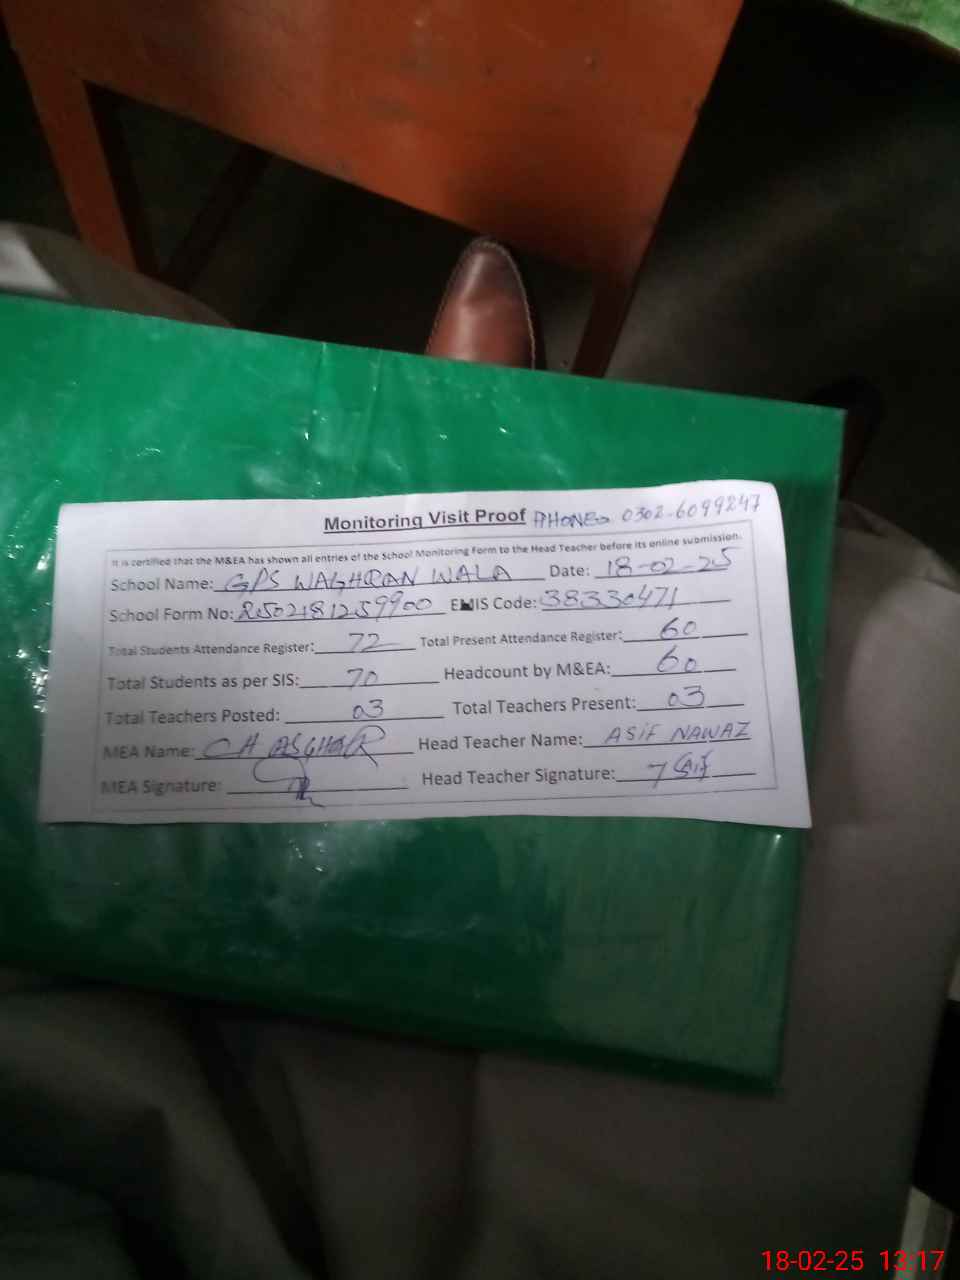 Monitoring Visit Proof PHONE 0302-6099247
It is certified that the M&EA has shown all entries of the School Monitoring Form to the Head Teacher before its online submission.
School Name: GPS WAGHRAN WALA Date: 18-02-25
School Form No: 2502181259900 EMIS Code: 38330471
Total Students Attendance Register: 72 Total Present Attendance Register: 60
Total Students as per SIS: 70 Headcount by M&EA: 60
Total Teachers Posted: 03 Total Teachers Present: 03
MEA Name: CH ASGHAR Head Teacher Name: ASIF NAWAZ
MEA Signature: Head Teacher Signature:
18-02-25 13:17